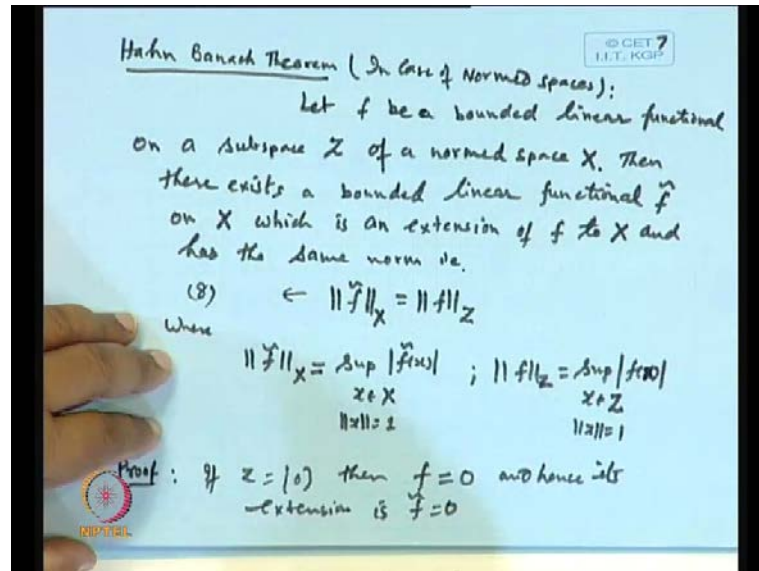 © CET 7
I.I.T. KGP
Hahn Banach Theorem (In Case of Normed Spaces):
Let f be a bounded linear functional
on a subspace Z of a normed space X. Then
there exists a bounded linear functional f̃
on X which is an extension of f to X and
has the same norm ie.
(8) ← ||f̃||_X = ||f||_Z
where
||f̃||_X = Sup |f̃(x)| ; ||f||_Z = Sup |f(x)|
x∈X x∈Z
||x||=1 ||x||=1
Proof : If Z = {0} then f = 0 and hence its
extension is f̃ = 0
NPTEL